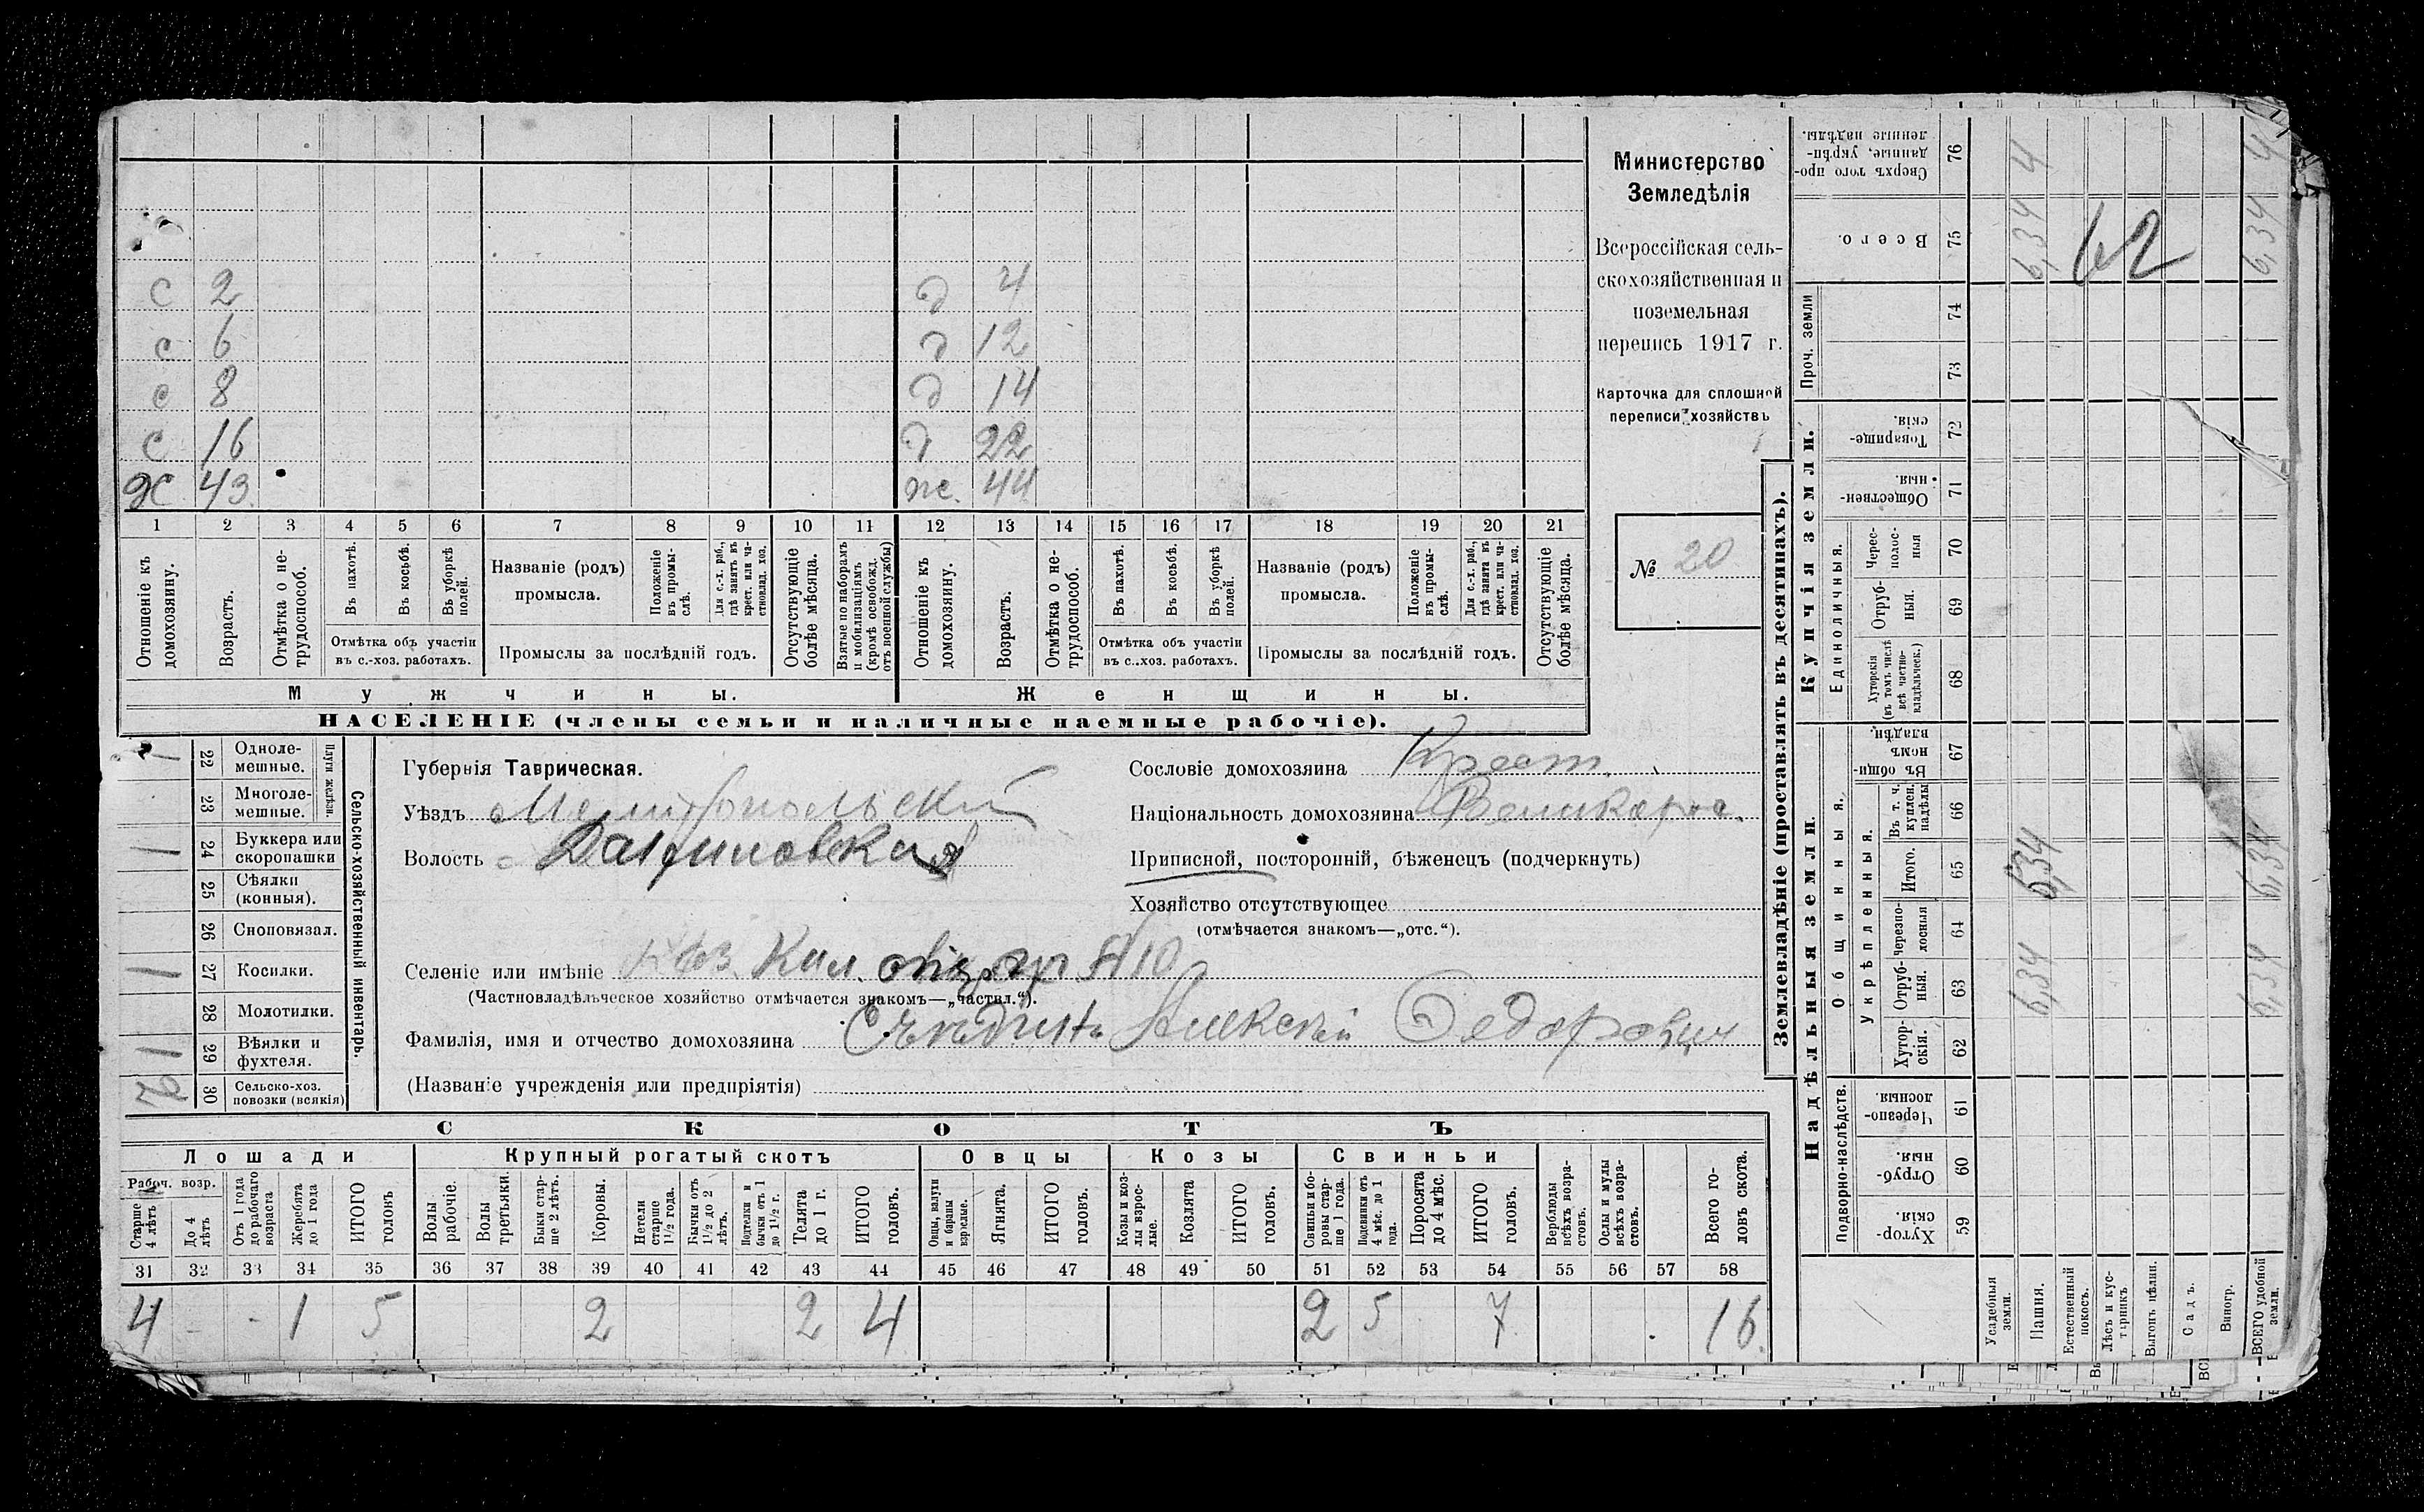 Министерство
Земледѣлія
Всероссійская сель-
скохозяйственная и
поземельная
перепись 1917 г.
Карточка для сплошной
переписи хозяйствъ
№ 20
с 2 д 4
с 6 д 12
с 8 д 14
с 16 д 22
х 43 ж. 44
1 2 3 4 5 6 7 8 9 10 11 12 13 14 15 16 17 18 19 20 21
Отношеніе къ домохозяину.
Возрастъ.
Отмѣтка о не-трудоспособ.
Въ пахотѣ.
Въ косьбѣ.
Въ уборкѣ полей.
Отмѣтка объ участіи
въ с.-хоз. работахъ.
Названіе (родъ)
промысла.
Положеніе въ промы-слѣ.
Для с.-х. раб., гдѣ занятъ въ крест. или ча-стновлад. хоз.
Промыслы за послѣдній годъ.
Отсутствующіе болѣе мѣсяца.
Взятые по наборамъ и мобилизаціямъ (кромѣ освобожд. отъ военной службы)
Отношеніе къ домохозяину.
Возрастъ.
Отмѣтка о не-трудоспособ.
Въ пахотѣ.
Въ косьбѣ.
Въ уборкѣ полей.
Отмѣтка объ участіи
въ с.-хоз. работахъ.
Названіе (родъ)
промысла.
Положеніе въ промы-слѣ.
Для с.-х. раб., гдѣ занята въ крест. или ча-стновлад. хоз.
Промыслы за послѣдній годъ.
Отсутствующіе болѣе мѣсяца.
Мужчины. Женщины.
НАСЕЛЕНІЕ (члены семьи и наличные наемные рабочіе).
Сельско-хозяйственный инвентарь.
Плуги желѣзн.
22 Одноле-мешные. 1
23 Многоле-мешные.
24 Буккера или скоропашки 1
25 Сѣялки (конныя).
26 Сноповязал.
27 Косилки. 1
28 Молотилки.
29 Вѣялки и фухтеля. 1
30 Сельско-хоз. повозки (всякія)
Губернія Таврическая.
Уѣздъ Мелитопольскій
Волость
Сословіе домохозяина Крест.
Національность домохозяина Великорос.
Приписной, посторонній, бѣженецъ (подчеркнуть)
Хозяйство отсутствующее
(отмѣчается знакомъ—„отс.“).
Селеніе или имѣніе
(Частновладѣльческое хозяйство отмѣчается знакомъ—„частвл.“).
Фамилія, имя и отчество домохозяина Алексѣй Федоровичъ
(Названіе учрежденія или предпріятія)
СКОТЪ
Лошади Крупный рогатый скотъ Овцы Козы Свиньи
Рабоч. возр.
Старше 4 лѣтъ
До 4 лѣтъ
Отъ 1 года до рабочаго возраста
Жеребята до 1 года
ИТОГО головъ
Волы рабочіе.
Волы третьяки.
Быки стар-ше 2 лѣтъ.
Коровы.
Нетели старше 1½ года.
Бычки отъ 1½ до 2 лѣтъ.
Подтелки и бычки отъ 1 до 1½ г.
Телята до 1 г.
ИТОГО головъ.
Овцы, валухи и бараны взрослые.
Ягнята.
ИТОГО головъ.
Козы и коз-лы взрос-лые.
Козлята
ИТОГО головъ.
Свиньи и бо-ровы стар-ше 1 года.
Подсвинки отъ 4 мѣс. до 1 года.
Поросята до 4 мѣс.
ИТОГО головъ.
Верблюды всѣхъ возра-стовъ.
Ослы и мулы всѣхъ возра-стовъ.
Всего го-ловъ скота.
31 32 33 34 35 36 37 38 39 40 41 42 43 44 45 46 47 48 49 50 51 52 53 54 55 56 57 58
4 - - 1 5 2 2 4 2 5 7 16
Землевладѣніе (проставлять въ десятинахъ).
Надѣльныя земли. Купчія земли. Проч. земли
Подворно-наслѣдств.
Общинныя.
Укрѣпленныя.
Единоличныя.
Хутор-скія. 59
Отруб-ныя. 60
Черезпо-лосныя. 61
Хутор-скія. 62
Отруб-ныя. 63
Черезпо-лосныя 64
Итого. 65
Въ т. ч. куплен. надѣлы 66
Въ общин-номъ владѣн. 67
Хуторскія (въ томъ числѣ всѣ частно-владѣльческ.) 68
Отруб-ныя. 69
Черес-полос-ныя 70
Обществен-ныя. 71
Товарище-скія. 72
73
74
Всего. 75
Сверхъ того про-данные, укрѣп-ленные надѣлы. 76
Усадебныя земли.
Пашня. 6,34 6,34 6,34 4
Естественный покосъ.
Лѣсъ и кус-тарникъ
Выгонъ цѣлин.
Садъ.
Виногр.
ВСЕГО удобной земли. 6,34 6,34 6,34 4
62